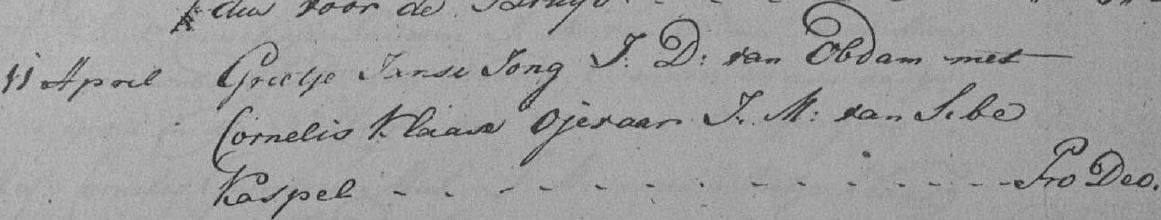 dus voor de Bruyd
11 April Greetje Janse Jong J: D: van Obdam met
Cornelis Klaase Ojevaar J. M: van Sibe
Kaspel - - - - - - - - - - - - Pro Deo.